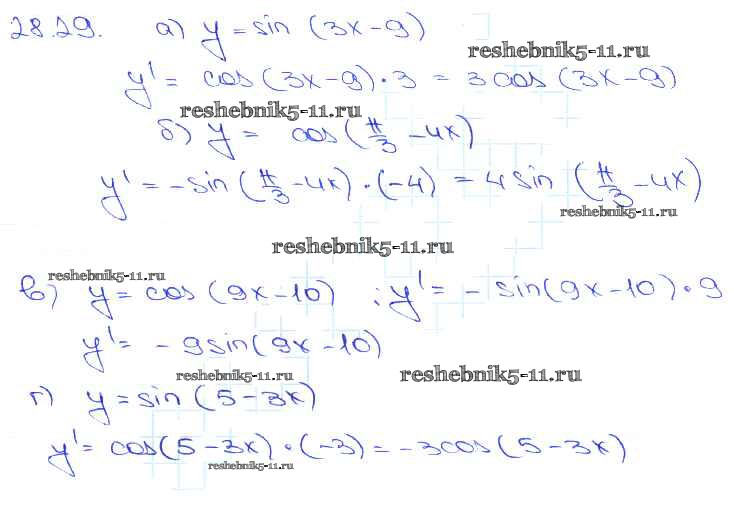 28.29. а) y = sin (3x - 9)
reshebnik5-11.ru
y' = cos (3x - 9) · 3 = 3 cos (3x - 9)
reshebnik5-11.ru
б) y = cos (π/3 - 4x)
y' = - sin (π/3 - 4x) · (-4) = 4 sin (π/3 - 4x)
reshebnik5-11.ru
reshebnik5-11.ru
reshebnik5-11.ru
в) y = cos (9x - 10) ; y' = - sin (9x - 10) · 9
y' = - 9 sin (9x - 10)
reshebnik5-11.ru reshebnik5-11.ru
г) y = sin (5 - 3x)
y' = cos (5 - 3x) · (-3) = - 3 cos (5 - 3x)
reshebnik5-11.ru